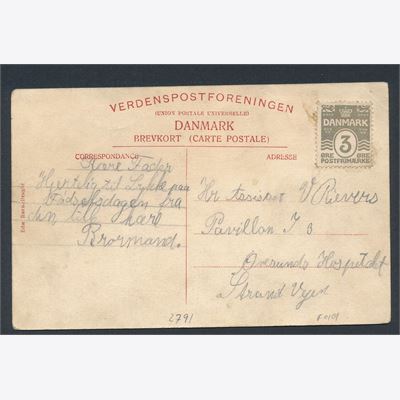 VERDENSPOSTFORENINGEN
(UNION POSTALE UNIVERSELLE)
DANMARK
BREVKORT (CARTE POSTALE)
CORRESPONDANCE
ADRESSE
DANMARK
3
ØRE ØRE
POSTFRIMÆRKE
Kære Fader
Hjertelig til Lykke paa
Fødselsdagen fra
din lille kære
Brormand.
Hr Assistent V
Pavillon I 3
Øresunds Hospitalet
Strand Vejen
2791